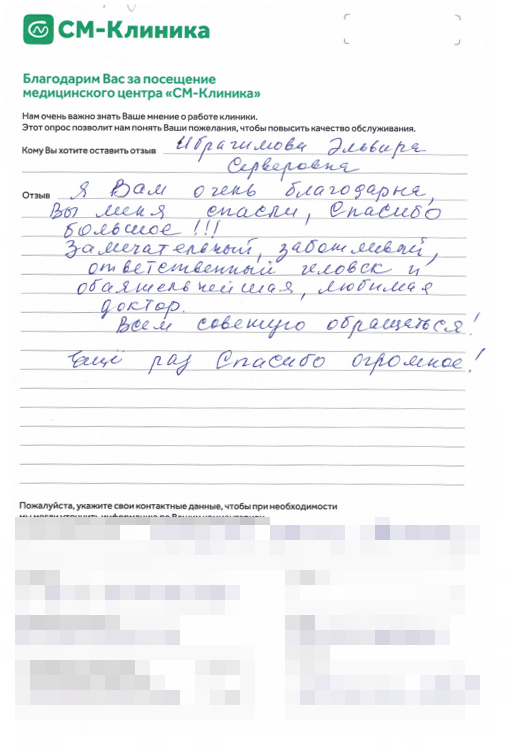 СМ-Клиника
Благодарим Вас за посещение
медицинского центра «СМ-Клиника»
Нам очень важно знать Ваше мнение о работе клиники.
Этот опрос позволит нам понять Ваши пожелания, чтобы повысить качество обслуживания.
Кому Вы хотите оставить отзыв Ибрагимова Эльвира
Серверовна
Отзыв Я Вам очень благодарна,
Вы меня спасли, Спасибо
большое!!!
Замечательный, заботливый,
ответственный человек и
обаятельнейшая, любимая
доктор.
Всем советую обращаться!
Ещё раз Спасибо огромное!
Пожалуйста, укажите свои контактные данные, чтобы при необходимости
мы могли уточнить информацию по Вашим комментариям